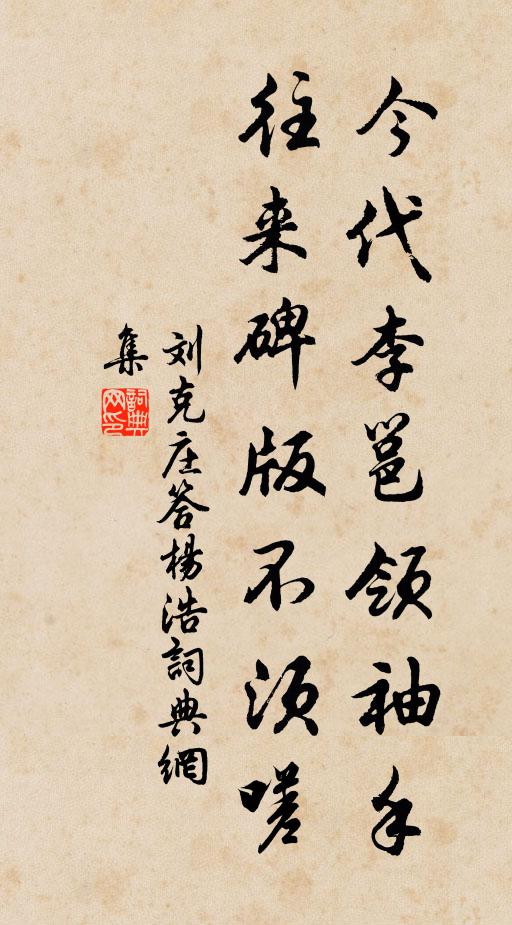 今代李邕领袖手
往来碑版不须嗟
刘克庄答楊浩詞典網
集
詞典网印